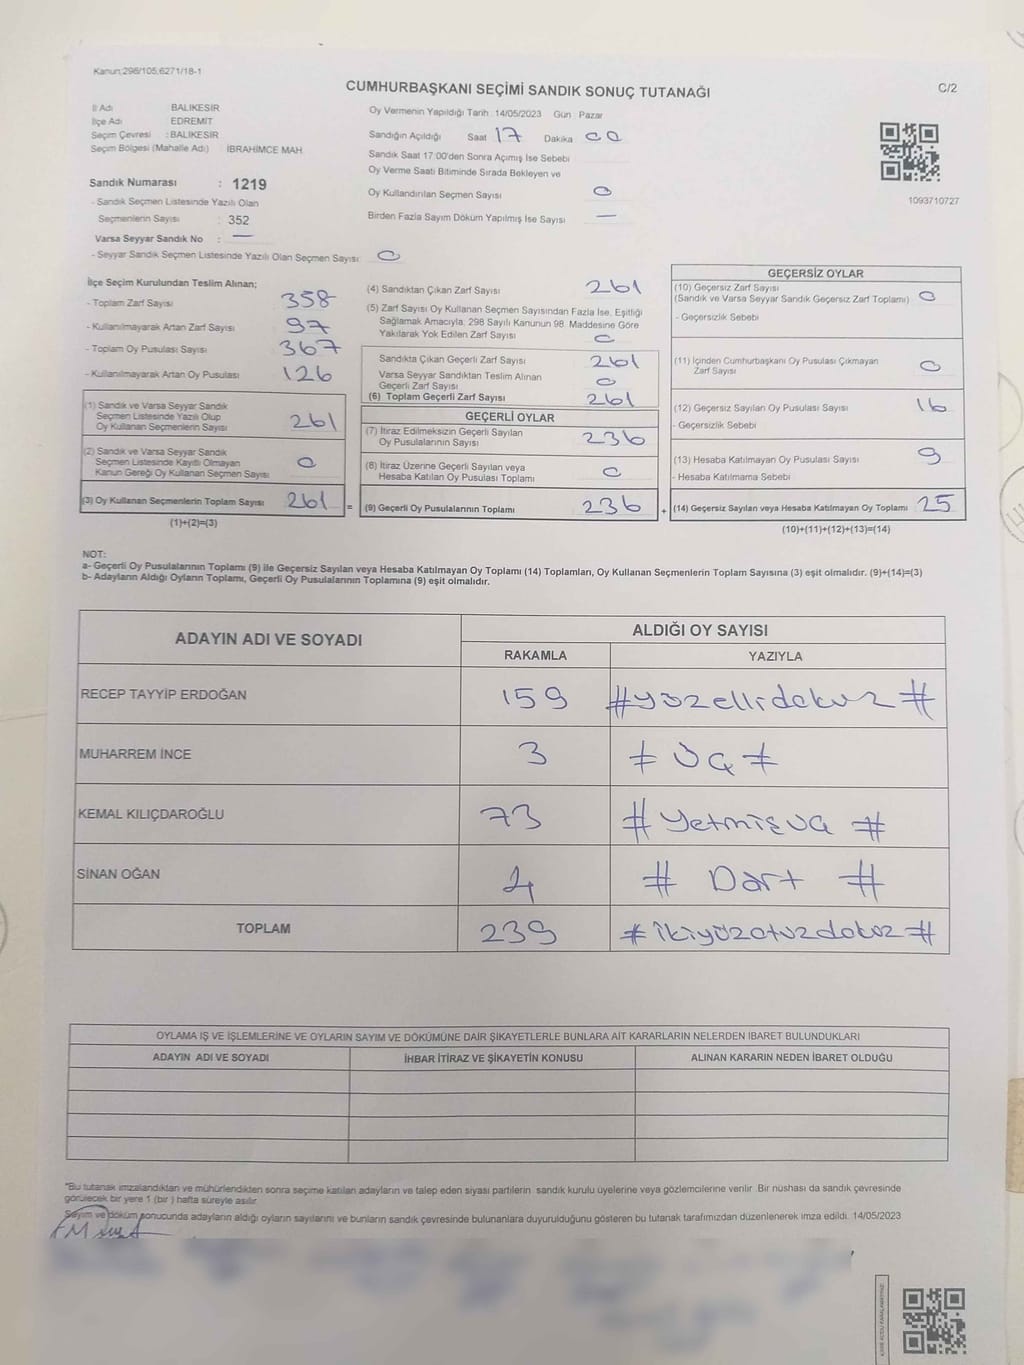 Kanun;298/105;6271/18-1
CUMHURBAŞKANI SEÇİMİ SANDIK SONUÇ TUTANAĞI
C/2
İl Adı BALIKESİR
İlçe Adı EDREMİT
Seçim Çevresi : BALIKESİR
Seçim Bölgesi (Mahalle Adı) İBRAHİMCE MAH.
Oy Vermenin Yapıldığı Tarih : 14/05/2023 Gün Pazar
Sandığın Açıldığı Saat 17 Dakika 00
Sandık Saat 17.00'den Sonra Açımış İse Sebebi
Oy Verme Saati Bitiminde Sırada Bekleyen ve
Oy Kullandırılan Seçmen Sayısı 0
Birden Fazla Sayım Döküm Yapılmış İse Sayısı —
1093710727
Sandık Numarası : 1219
- Sandık Seçmen Listesinde Yazılı Olan
Seçmenlerin Sayısı : 352
Varsa Seyyar Sandık No : —
- Seyyar Sandık Seçmen Listesinde Yazılı Olan Seçmen Sayısı: 0
İlçe Seçim Kurulundan Teslim Alınan;
- Toplam Zarf Sayısı 358
- Kullanılmayarak Artan Zarf Sayısı 97
- Toplam Oy Pusulası Sayısı 367
- Kullanılmayarak Artan Oy Pusulası 126
(1) Sandık ve Varsa Seyyar Sandık
Seçmen Listesinde Yazılı Olup
Oy Kullanan Seçmenlerin Sayısı 261
(2) Sandık ve Varsa Seyyar Sandık
Seçmen Listesinde Kayıtlı Olmayan
Kanun Gereği Oy Kullanan Seçmen Sayısı 0
(3) Oy Kullanan Seçmenlerin Toplam Sayısı 261 =
(1)+(2)=(3)
(4) Sandıktan Çıkan Zarf Sayısı 261
(5) Zarf Sayısı Oy Kullanan Seçmen Sayısından Fazla İse, Eşitliği
Sağlamak Amacıyla, 298 Sayılı Kanunun 98. Maddesine Göre
Yakılarak Yok Edilen Zarf Sayısı 0
Sandıkta Çıkan Geçerli Zarf Sayısı 261
Varsa Seyyar Sandıktan Teslim Alınan
Geçerli Zarf Sayısı 0
(6) Toplam Geçerli Zarf Sayısı 261
GEÇERLİ OYLAR
(7) İtiraz Edilmeksizin Geçerli Sayılan
Oy Pusulalarının Sayısı 236
(8) İtiraz Üzerine Geçerli Sayılan veya
Hesaba Katılan Oy Pusulası Toplamı 0
(9) Geçerli Oy Pusulalarının Toplamı 236 +
GEÇERSİZ OYLAR
(10) Geçersiz Zarf Sayısı
(Sandık ve Varsa Seyyar Sandık Geçersiz Zarf Toplamı) 0
- Geçersizlik Sebebi
(11) İçinden Cumhurbaşkanı Oy Pusulası Çıkmayan
Zarf Sayısı 0
(12) Geçersiz Sayılan Oy Pusulası Sayısı 16
- Geçersizlik Sebebi
(13) Hesaba Katılmayan Oy Pusulası Sayısı 9
- Hesaba Katılmama Sebebi
(14) Geçersiz Sayılan veya Hesaba Katılmayan Oy Toplamı 25
(10)+(11)+(12)+(13)=(14)
NOT:
a- Geçerli Oy Pusulalarının Toplamı (9) ile Geçersiz Sayılan veya Hesaba Katılmayan Oy Toplamı (14) Toplamları, Oy Kullanan Seçmenlerin Toplam Sayısına (3) eşit olmalıdır. (9)+(14)=(3)
b- Adayların Aldığı Oyların Toplamı, Geçerli Oy Pusulalarının Toplamına (9) eşit olmalıdır.
ADAYIN ADI VE SOYADI ALDIĞI OY SAYISI
RAKAMLA YAZIYLA
RECEP TAYYİP ERDOĞAN 159 #yüzellidokuz#
MUHARREM İNCE 3 # üç #
KEMAL KILIÇDAROĞLU 73 # yetmişüç #
SİNAN OĞAN 4 # Dört #
TOPLAM 239 #ikiyüzotuzdokuz#
OYLAMA İŞ VE İŞLEMLERİNE VE OYLARIN SAYIM VE DÖKÜMÜNE DAİR ŞİKAYETLERLE BUNLARA AİT KARARLARIN NELERDEN İBARET BULUNDUKLARI
ADAYIN ADI VE SOYADI İHBAR İTİRAZ VE ŞİKAYETİN KONUSU ALINAN KARARIN NEDEN İBARET OLDUĞU
"Bu tutanak imzalandıktan ve mühürlendikten sonra seçime katılan adayların ve talep eden siyasi partilerin sandık kurulu üyelerine veya gözlemcilerine verilir. Bir nüshası da sandık çevresinde
görülecek bir yere 1 (bir ) hafta süreyle asılır.
Sayım ve döküm sonucunda adayların aldığı oyların sayılarını ve bunların sandık çevresinde bulunanlara duyurulduğunu gösteren bu tutanak tarafımızdan düzenlenerek imza edildi. 14/05/2023